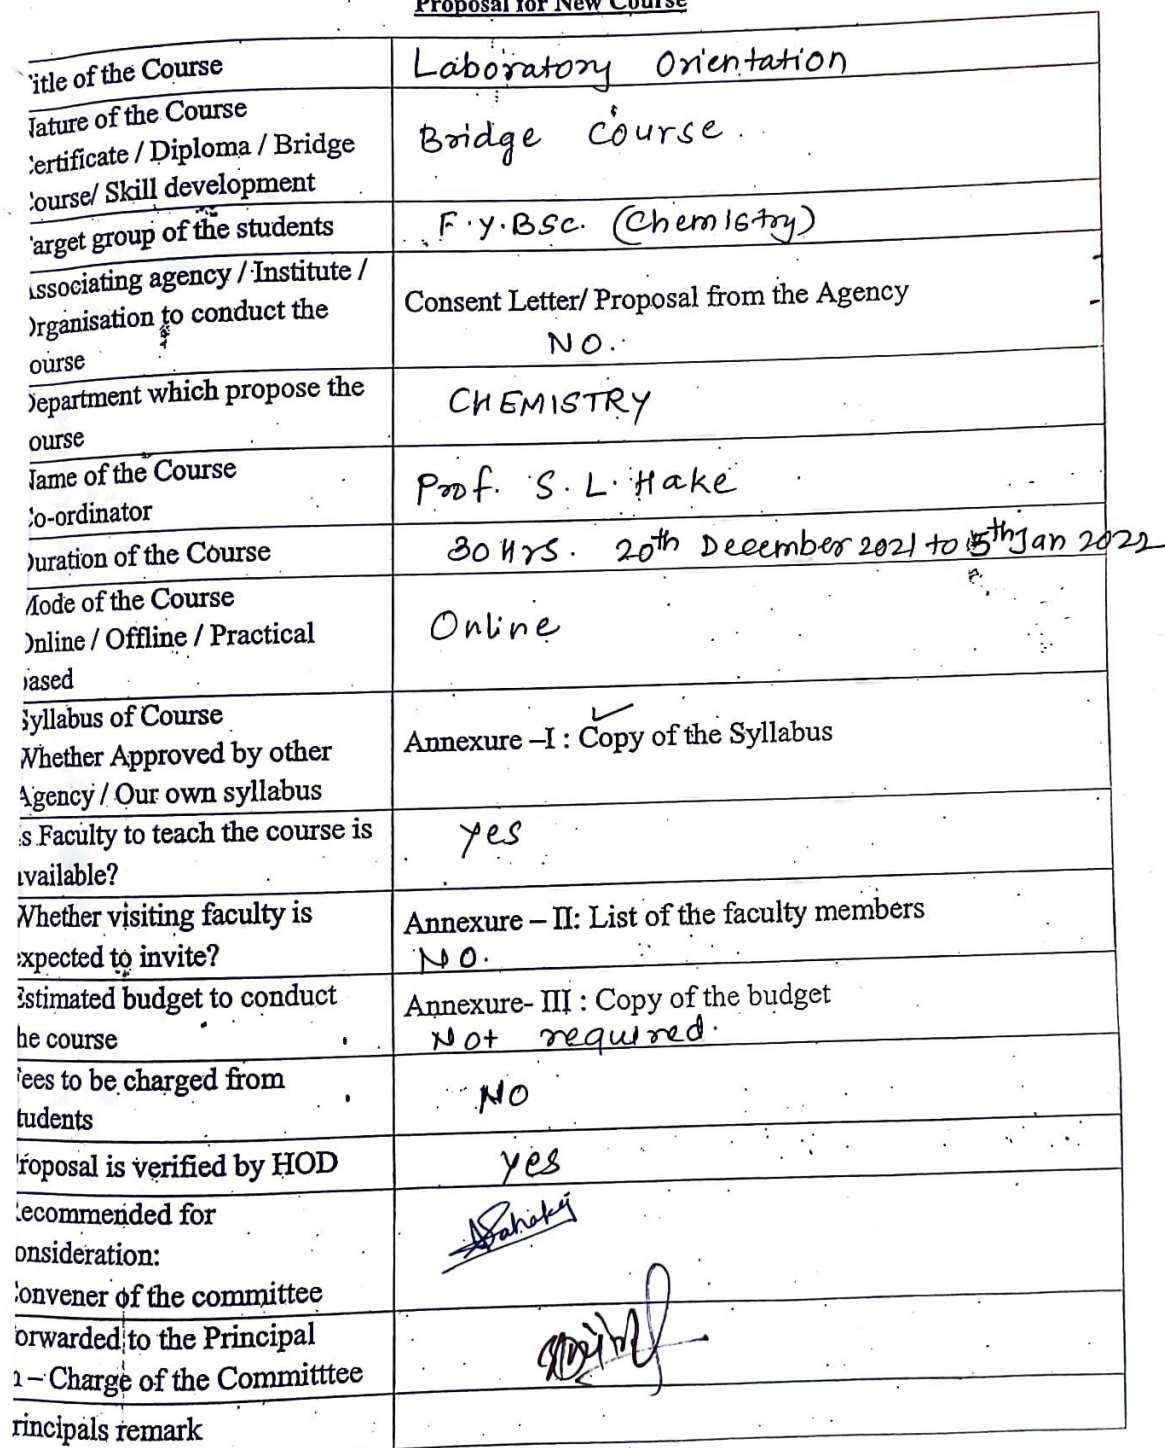 Proposal for New Course
itle of the Course
Laboratory Orientation
Nature of the Course
Certificate / Diploma / Bridge
Course/ Skill development
Bridge Course.
arget group of the students
F.Y.BSc. (Chemistry)
Associating agency / Institute /
Organisation to conduct the
ourse
Consent Letter/ Proposal from the Agency
NO.
Department which propose the
ourse
CHEMISTRY
Name of the Course
Co-ordinator
Prof. S. L. Hake
Duration of the Course
30 Hrs. 20th December 2021 to 5th Jan 2022
Mode of the Course
Online / Offline / Practical
based
Online
Syllabus of Course
Whether Approved by other
Agency / Our own syllabus
Annexure –I : Copy of the Syllabus
s Faculty to teach the course is
available?
Yes
Whether visiting faculty is
expected to invite?
Annexure – II: List of the faculty members
NO.
Estimated budget to conduct
he course
Annexure- III : Copy of the budget
Not required.
ees to be charged from
tudents
NO
roposal is verified by HOD
Yes
Recommended for
onsideration:
Convener of the committee
orwarded to the Principal
n – Charge of the Committtee
rincipals remark